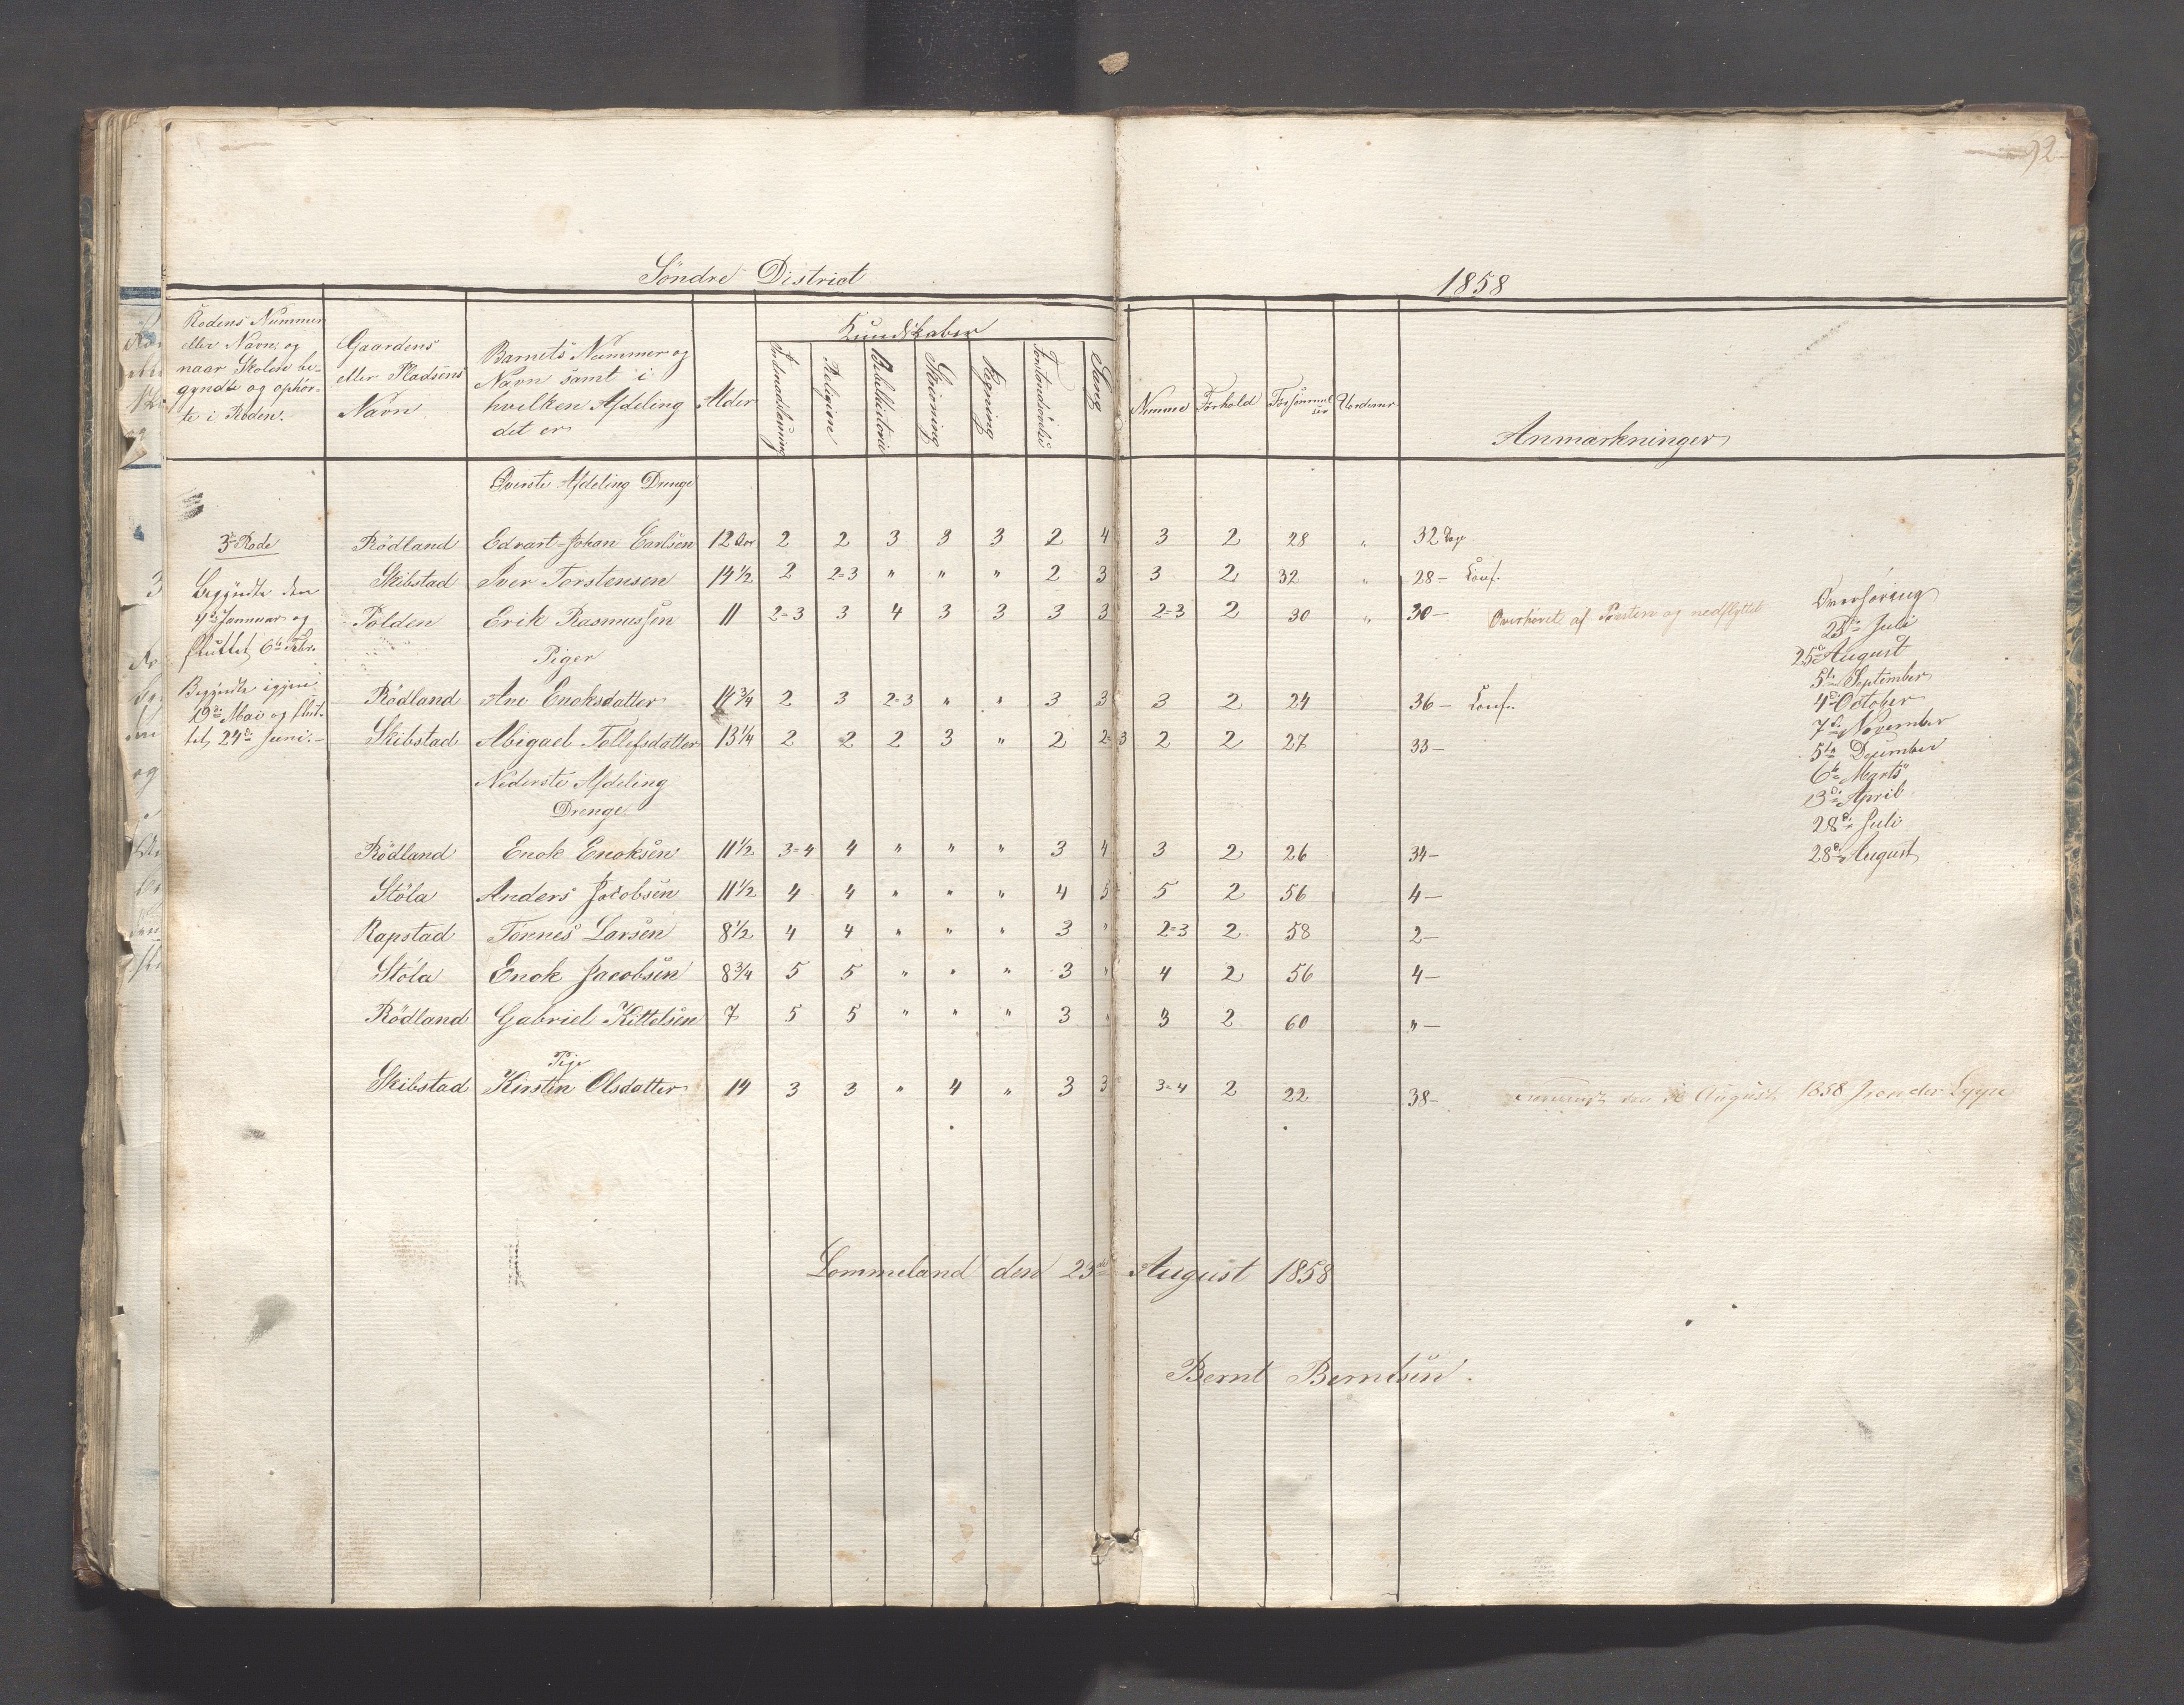 92
Söndre District
1858
Rodens Nummer
eller Navn, og
naar Skolen be-
gyndte og ophör-
te i Roden.
Gaardens
eller Pladsens
Navn
Barnets Nummer og
Navn samt i
hvilken Afdeling
det er
Alder
Kundskaber
Indenadslæsning
Religion
Bibelhistorie
Skrivning
Regning
Forstandsövelse
Sang
Nemme
Forhold
Forsömmelser
Vurderer
Anmærkninger
Överste Afdeling Drenge
3die Rode
Rödland Edvart Johan Carlsen 12 Aar 2 2 3 3 3 2 4 3 2 28 " 32 Dage
Begyndte den
Skibstad Iver Torstensen 14½ 2 2=3 " " " 2 3 3 2 32 " 28- Conf.
4de Januar og
Polden Erik Rasmussen 11 2=3 3 4 3 3 3 3 2=3 2 30 " 30- Overhöret af og nedflyttet
sluttet 6te Febr.
Piger
Begyndte igjen
Rödland Ane Enoksdatter 14¾ 2 3 2=3 " " 3 3 3 2 24 36- Conf.
19de Mai og slut-
tet 24de Juni.-
Skibstad Abigael Tollefsdatter 13¼ 2 2 2 3 " 2 2=3 2 2 27 33-
Nederste Afdeling
Drenge
Rödland Enok Enoksen 11½ 3=4 4 " " " 3 4 3 2 26 34-
Stöla Anders Jacobsen 11½ 4 4 " " " 4 5 5 2 56 4-
Rapstad Tönnes Larsen 8½ 4 4 " " " 3 " 2=3 2 58 2-
Stöla Enok Jacobsen 8¾ 5 5 " " " 3 " 4 2 56 4-
Rödland Gabriel Kittelsen 7 5 5 " " " 3 " 3 2 60 "-
Pige
Skibstad Kirstin Olsdatter 14 3 3 " 4 " 3 3 3=4 2 22 38- den August 1858
Overhöring
25de Juli
25de August
5te September
4de October
7de November
5te December
6te Marts
13de April
28de Juli
28de August
Lommeland den 23de August 1858
Bernt Berntsen.